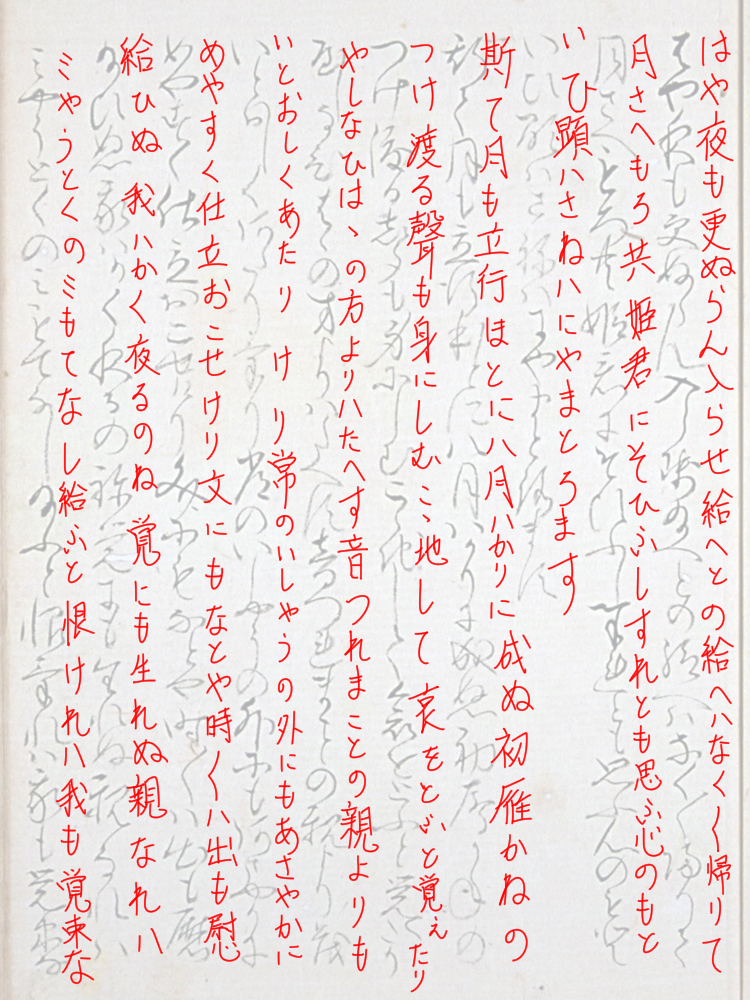 はや夜も更ぬらん入らせ給へとの給へハなく〱帰りて
月さへもろ共姫君にそひふしすれとも思ふ心のもと
いひ顕ハさねハにやまとろます
斯て月も立行ほとに八月ハかりに成ぬ初雁かねの
つけ渡る聲も身にしむこゝ地して哀をとふと覚えたり
やしなひはゝの方よりハたへす音つれまことの親よりも
いとおしくあたりけり常のいしやうの外にもあさやかに
めやすく仕立おこせけり文にもなとや時〱ハ出も慰
給ひぬ我ハかく夜るのね覚にも生れぬ親なれハ
ミやうとくのミもてなし給ふと恨けれハ我も覚束な